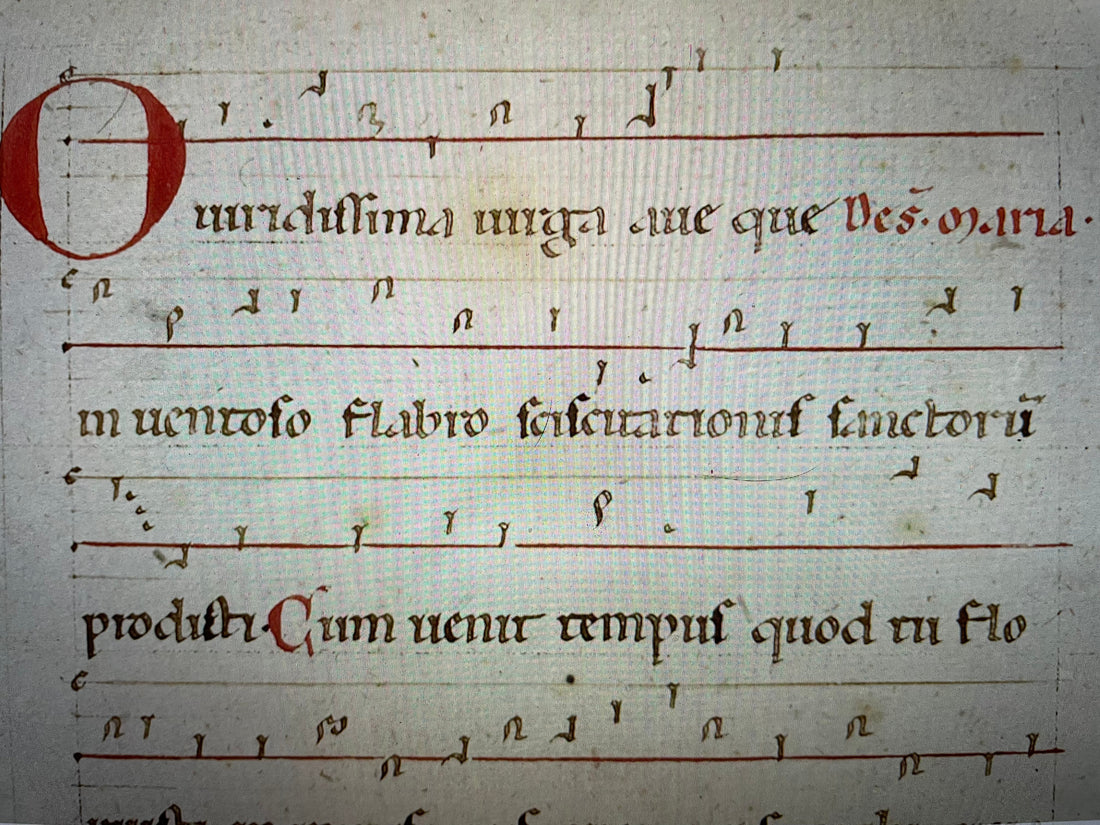 O uiridissima uirga aue que De s̄. Maria.
in uentoso flabro sciscitationis sanctorū
prodisti. Cum uenit tempus quod tu flo